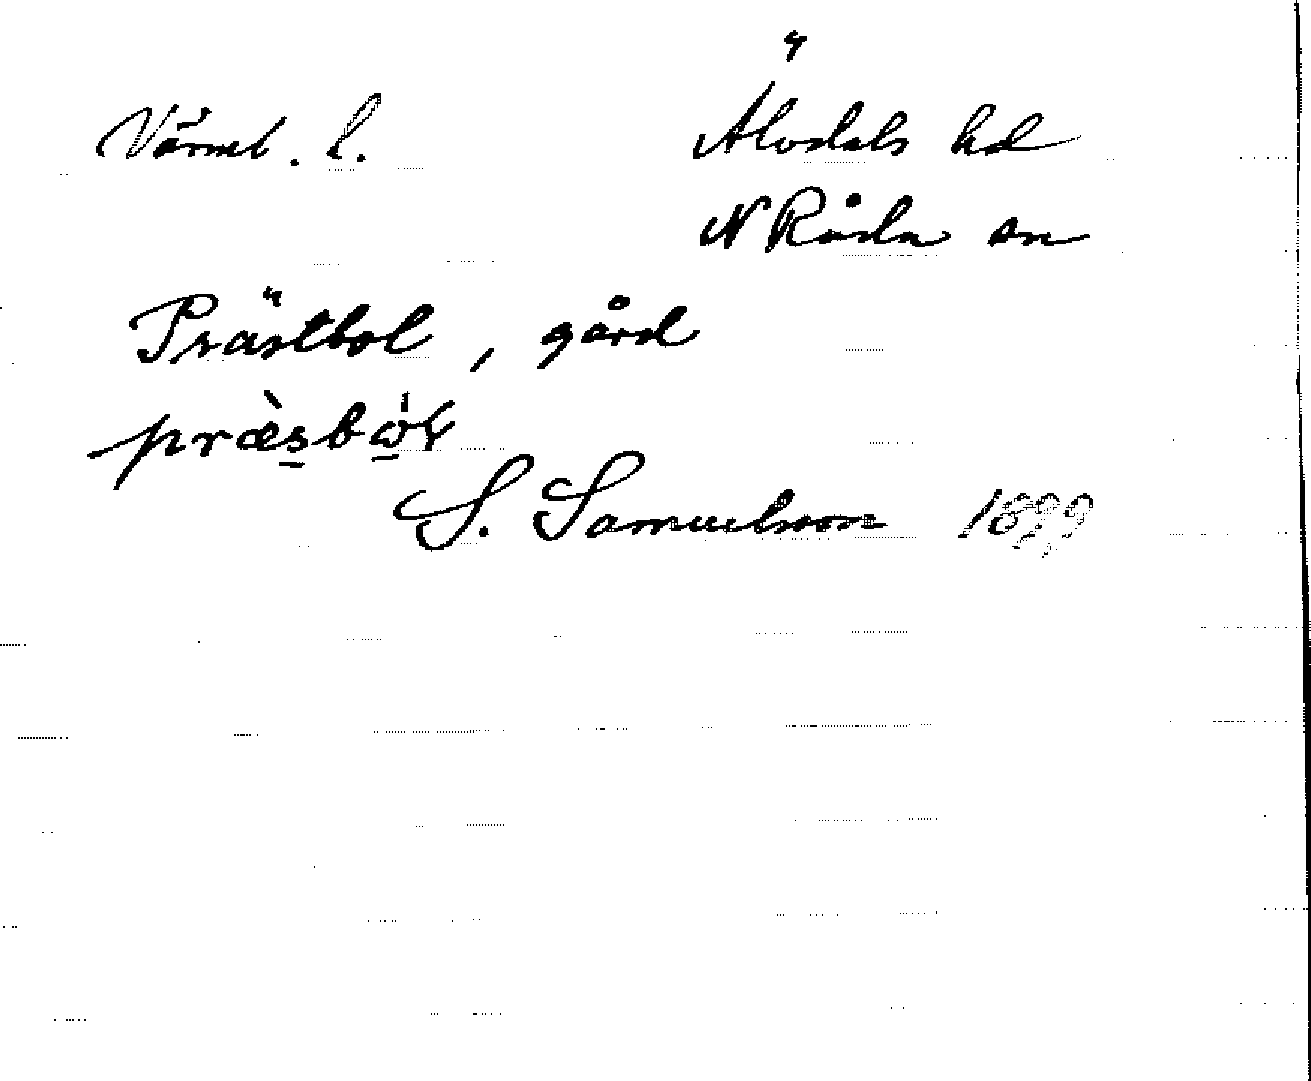 Värml. l. Älvdals hd
N Råda sn
Prästbol, gård
præ̀s̲bώ̲ɫ
S. Samuelsson 1899